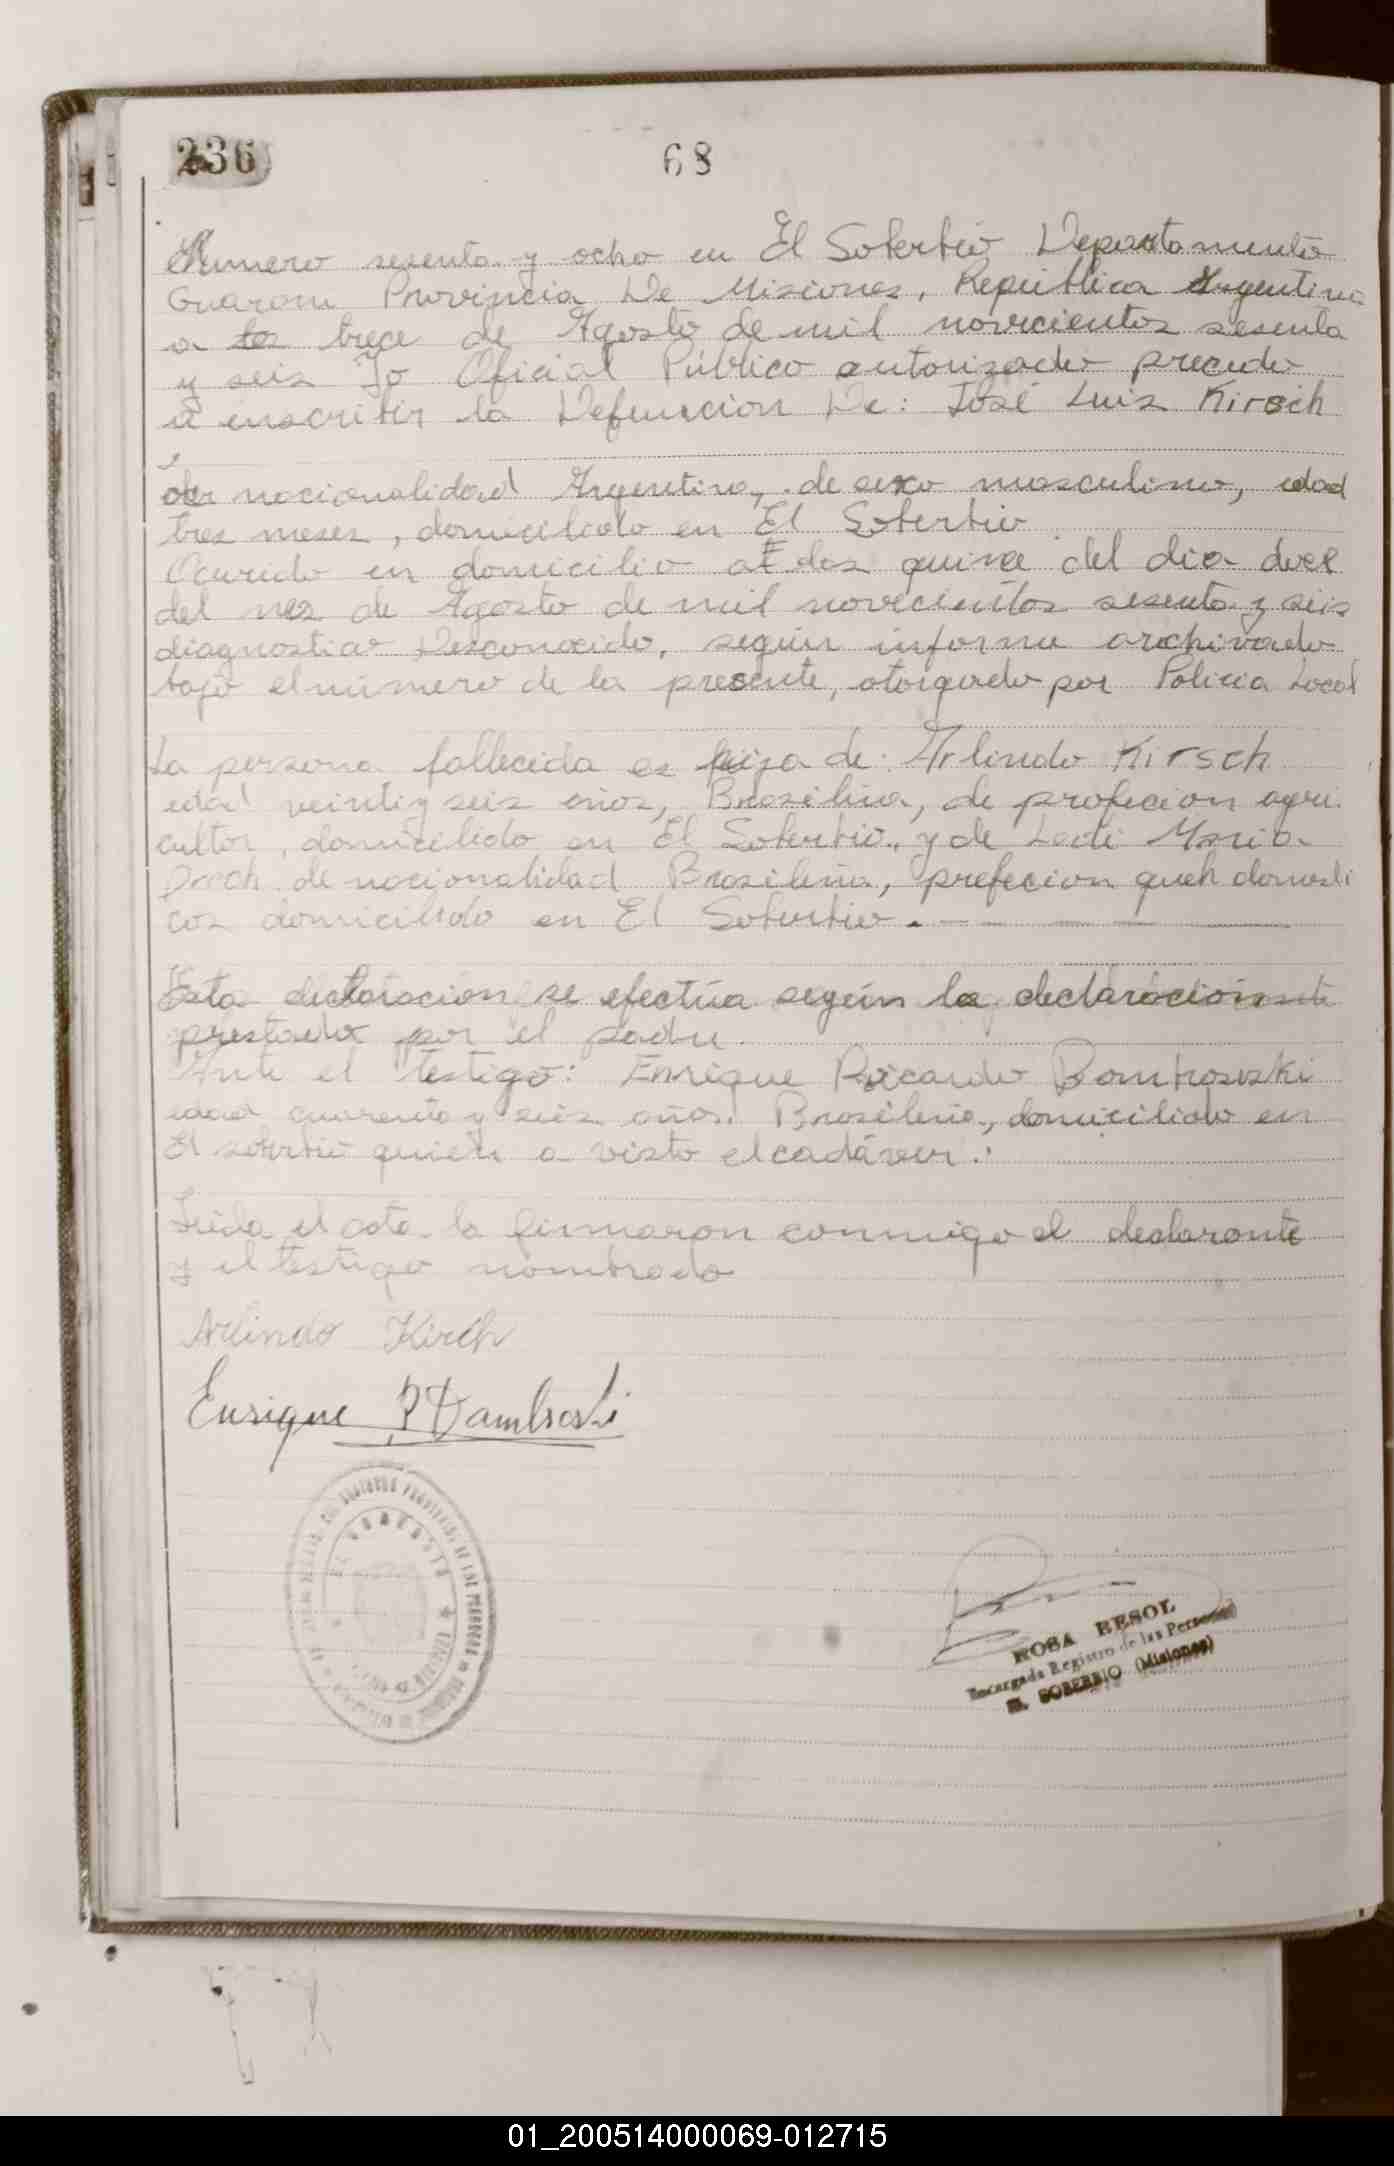 236
68
Numero sesenta y ocho en El Soberbio Departamento
Guarani Provincia De Misiones, Republica Argentina
a los trece de Agosto de mil novecientos sesenta
y seis Yo Oficial Público autorizado procedo
a inscribir la Defunción De: José Luis Kirsch
de nacionalidad Argentina, de sexo masculino, edad
tres meses, domiciliado en El Soberbio
Ocurrido en domicilio a las quince del dia doce
del mes de Agosto de mil novecientos sesenta y seis
diagnostico Desconocido, según informe archivado
bajo el número de la presente, otorgado por Policia Local
La persona fallecida es hija de: Arlindo Kirsch
edad veinti y seis años, Brasileña, de profecion agri
cultor, domicilido en El Soberbio, y de Ledi Maria
de nacionalidad Brasileña, profecion queh domesti
cos domiciliado en El Soberbio.
Esta declaracion se efectúa según la declaración
prestada por el padre.
Ante el testigo: Enrique Ricardo Dombrosvski
edad cuarenta y seis años, Brasileña, domiciliado en
El sobrbio quien a visto el cadáver.
Leida el acta la firmaron conmigo el declarante
y el testigo nombrado
Arlindo Kirch
Enrique R Dambroski
ROSA BESOL
Encargada Registro de las Personas
EL SOBERBIO (Misiones)
01_200514000069-012715